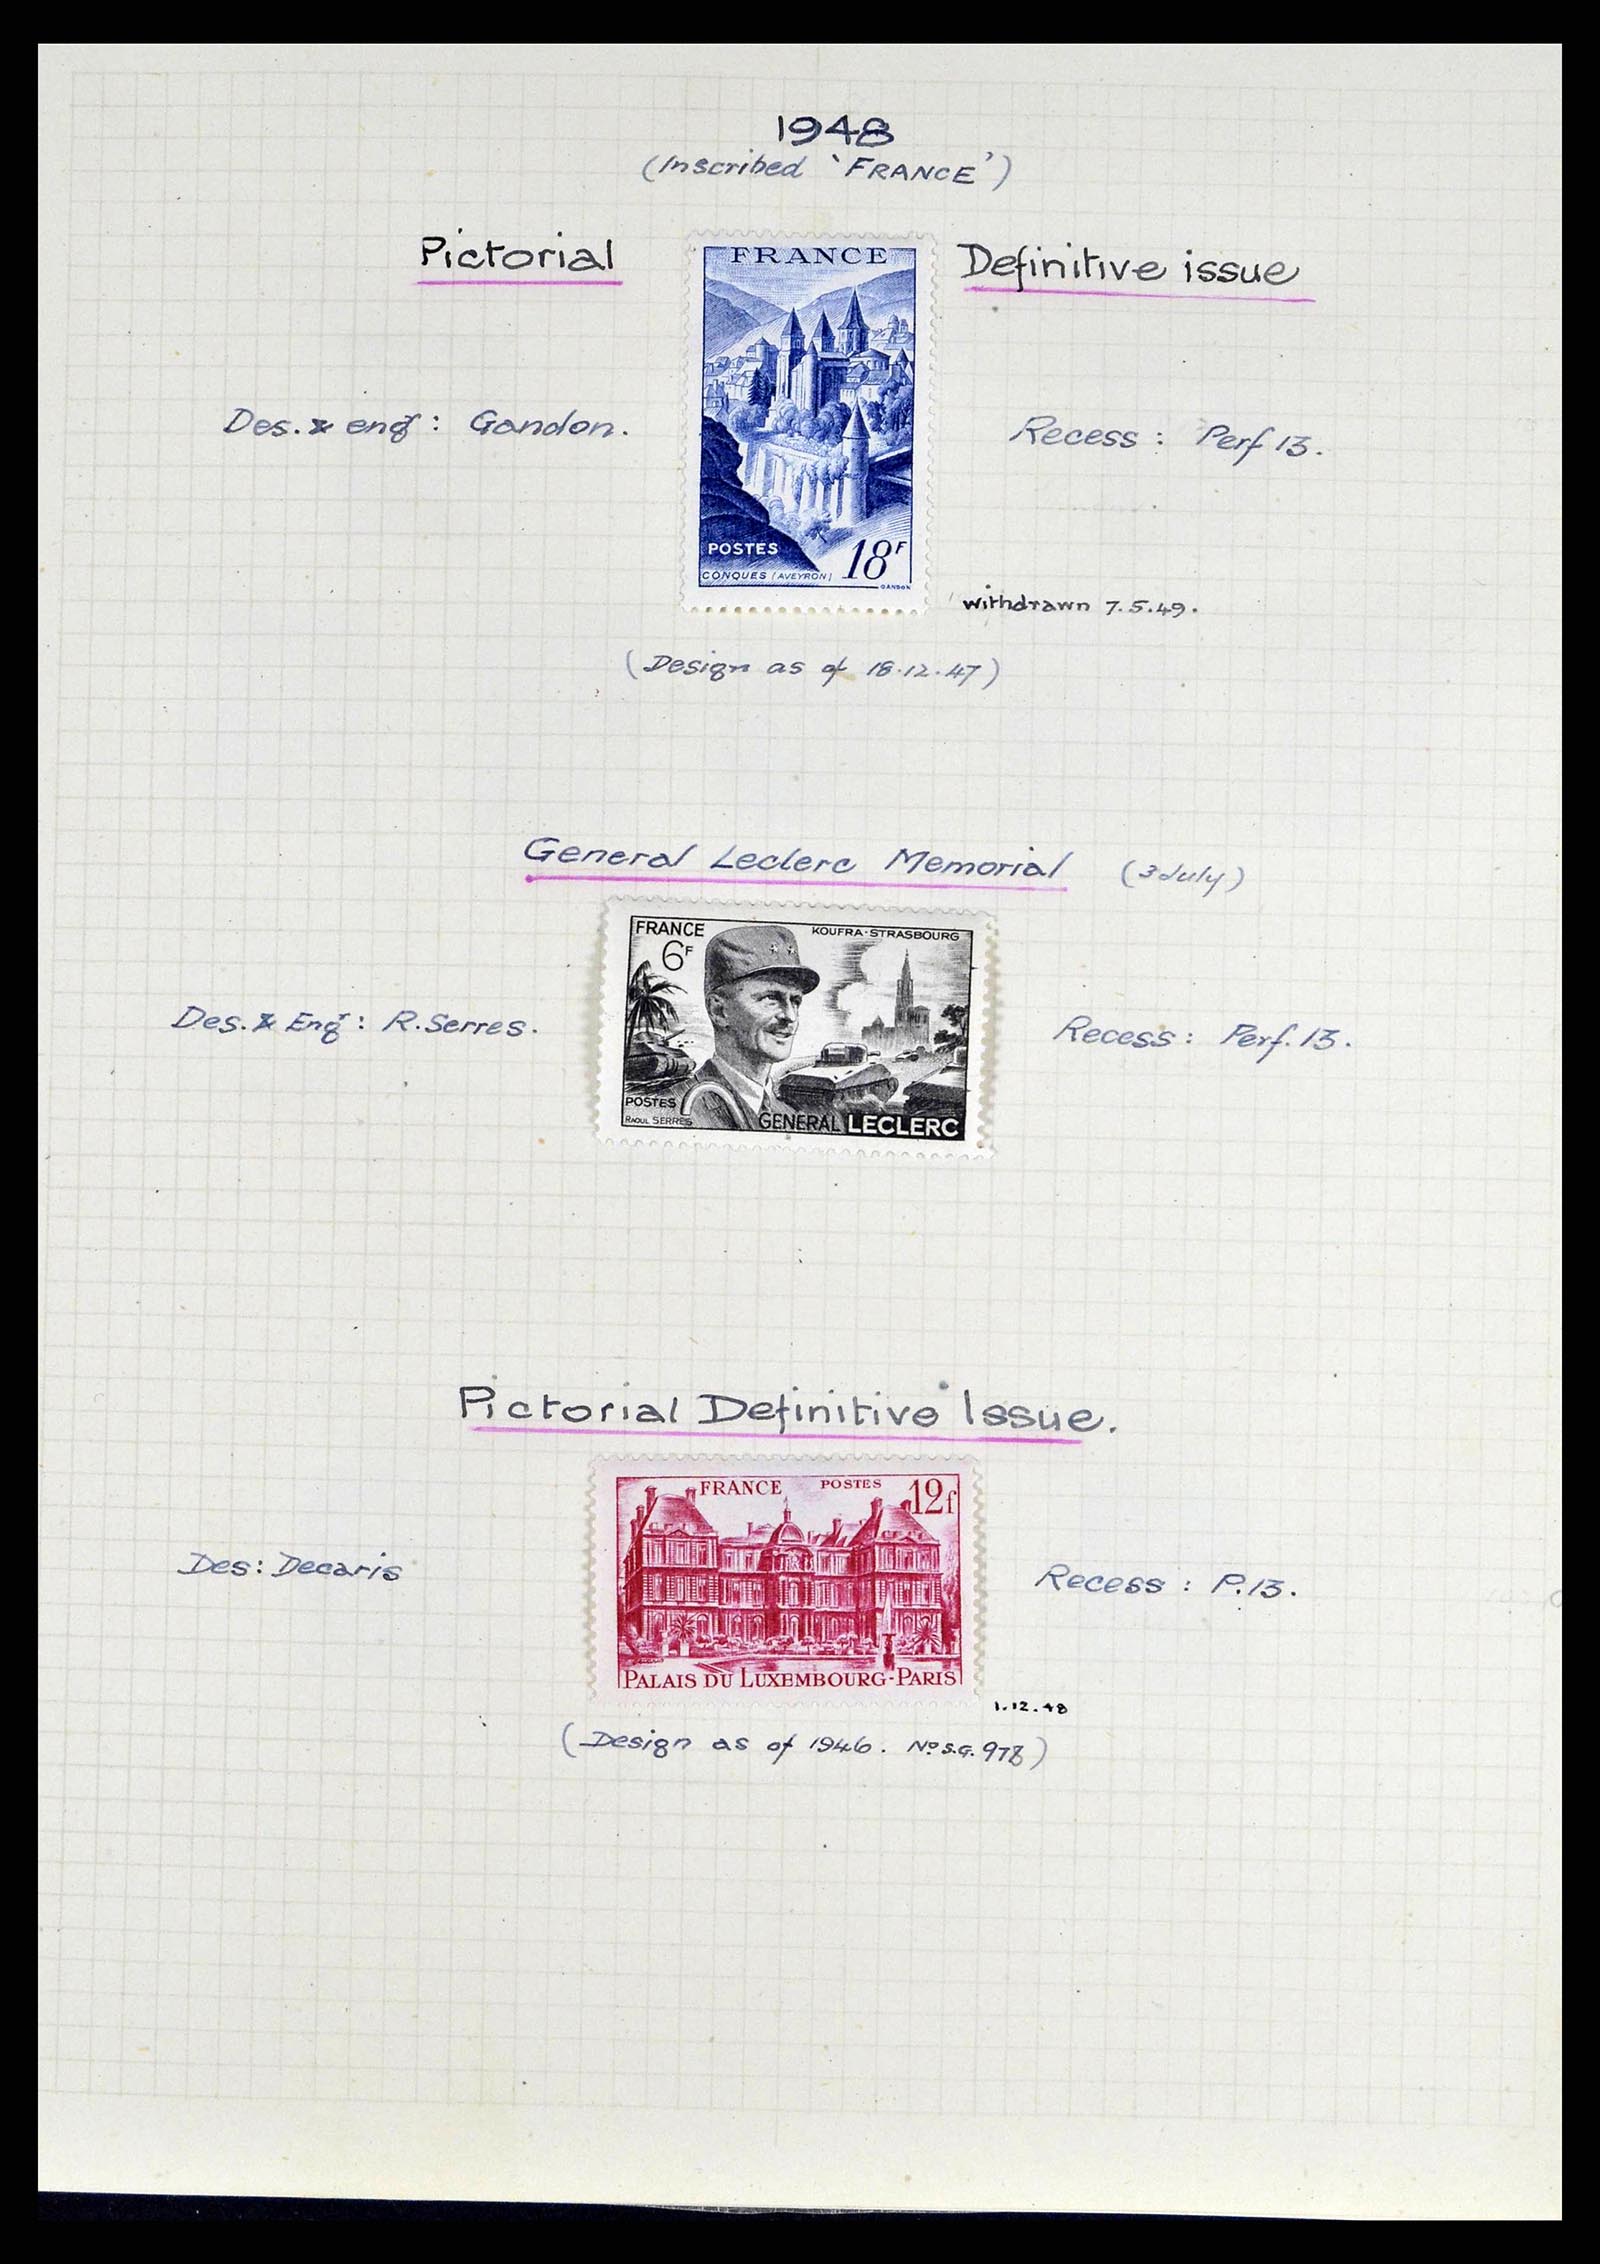 1948
(Inscribed 'FRANCE')
Pictorial
Definitive issue
FRANCE
Des. & eng: Gandon.
Recess: Perf 13.
POSTES
18F
CONQUES (AVEYRON)
GANDON
withdrawn 7.5.49.
(Design as of 18.12.47)
General Leclerc Memorial (3 July)
FRANCE
KOUFRA-STRASBOURG
6F
Des. & Eng: R. Serres.
Recess: Perf. 13.
POSTES
RAOUL SERRES
GENERAL LECLERC
Pictorial Definitive Issue.
FRANCE POSTES 12f
Des: Decaris
Recess: P.13.
PALAIS DU LUXEMBOURG-PARIS
1.12.48
(Design as of 1946. No S.G. 978)